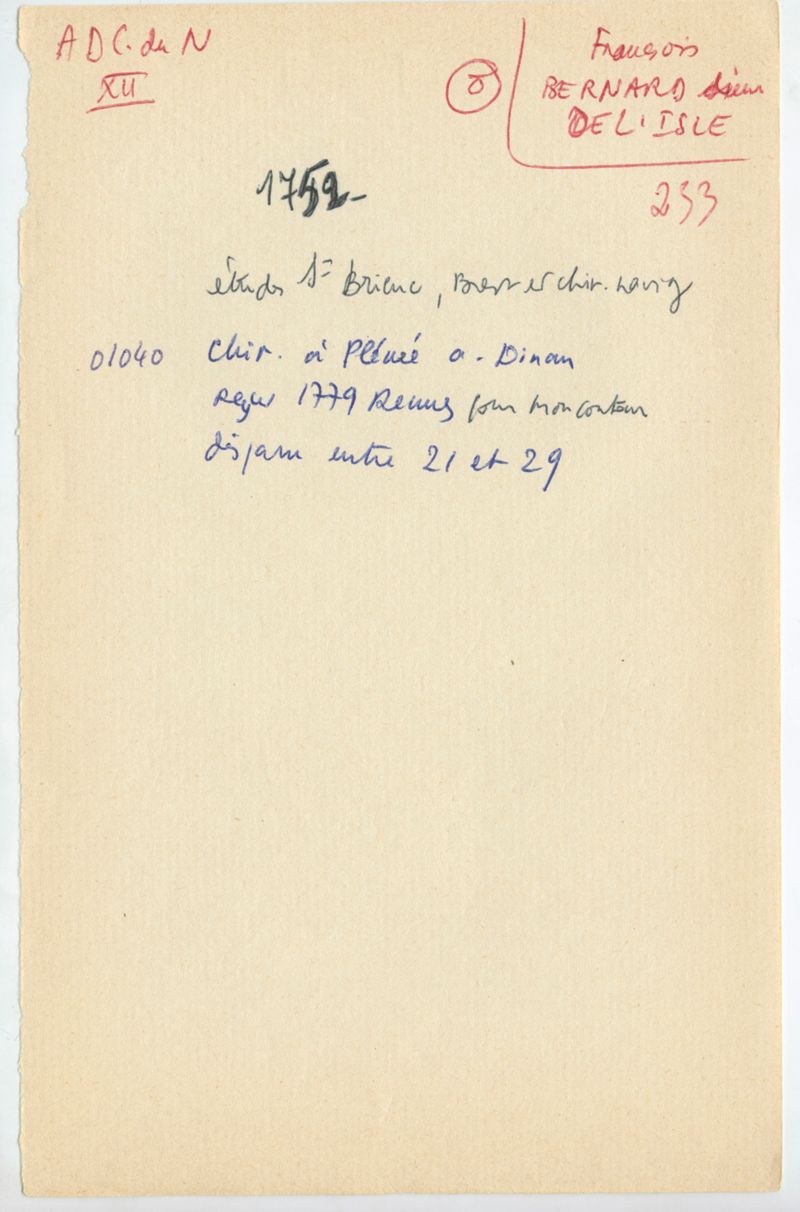 A D C. du N
XII
François
BERNARD sieur
DE L'ISLE
233
1752-
études St Brieuc, Brest et chir. navig
01040 Chir. à Plénée a. Dinan
reçu 1779 Rennes pour Moncontour
disparu entre 21 et 29